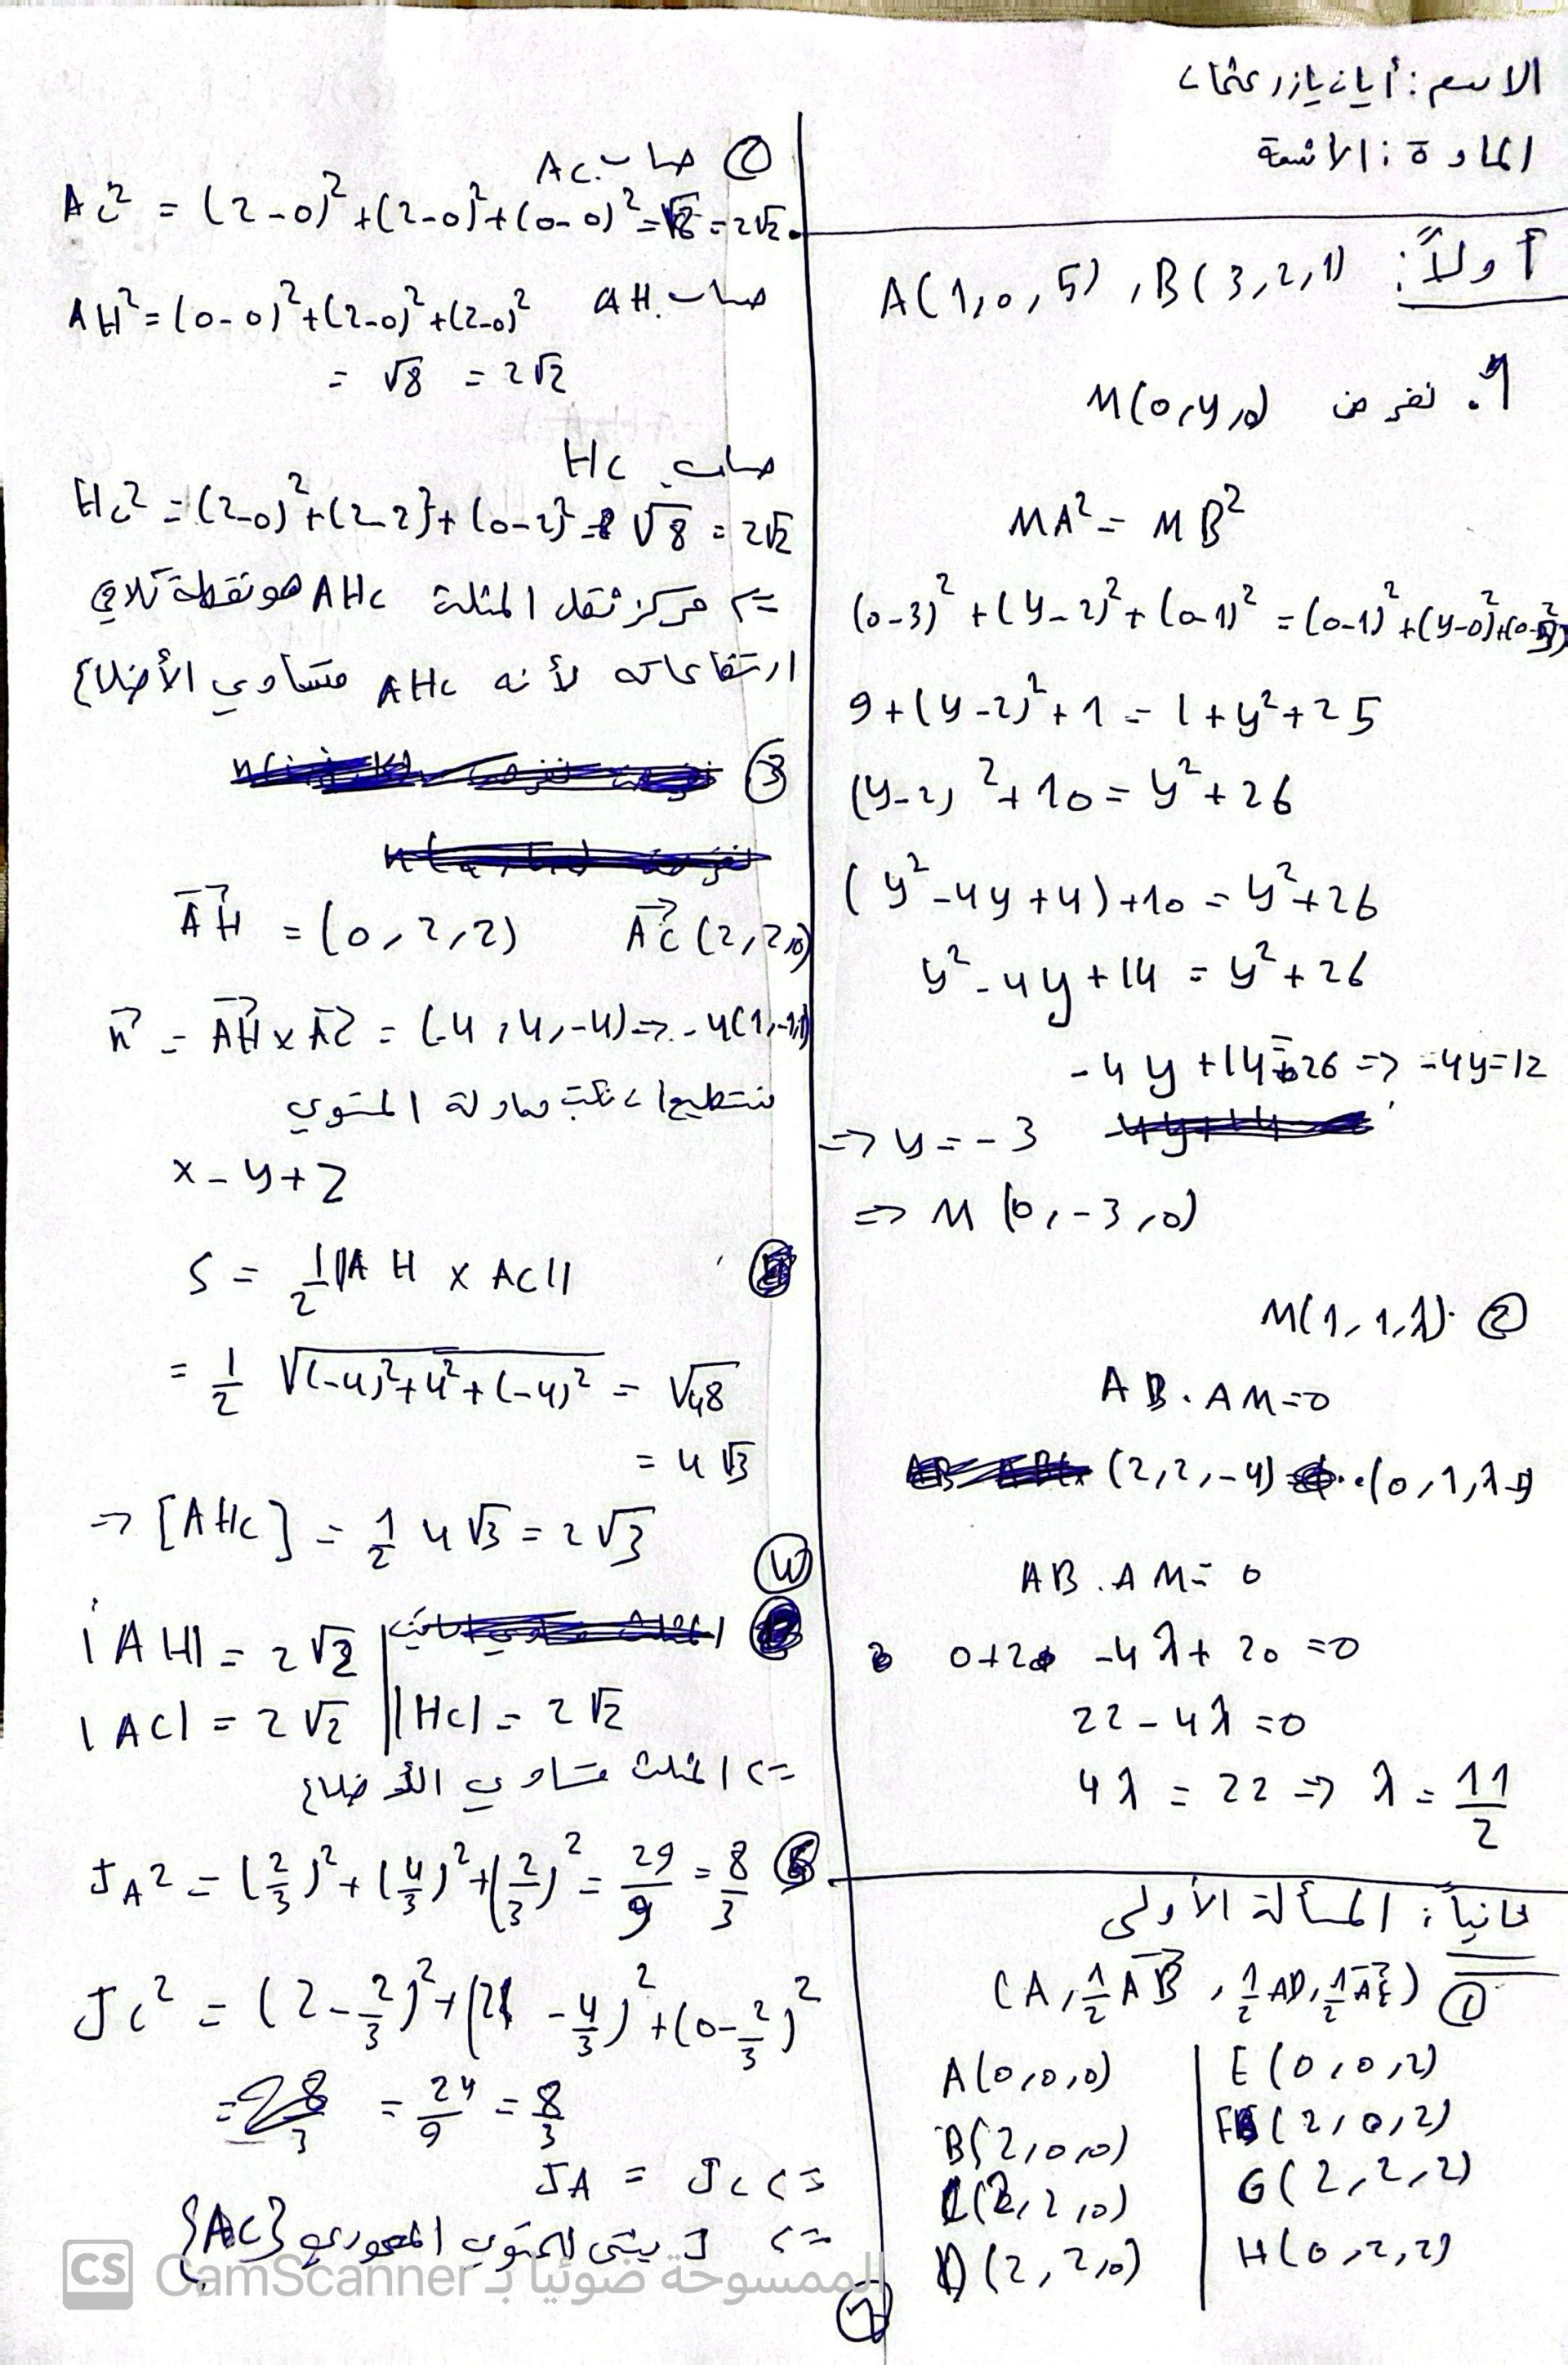 الاسم: أيان يازر عثمان
المادة: الأشعة
أولاً: A(1,0,5) , B(3,2,1)
1. نفرض M(0,y,0)
MA² = MB²
(0-3)² + (y-2)² + (0-1)² = (0-1)² + (y-0)² + (0-5)²
9 + (y-2)² + 1 = 1 + y² + 25
(y-2)² + 10 = y² + 26
(y² - 4y + 4) + 10 = y² + 26
y² - 4y + 14 = y² + 26
-4y + 14 = 26 => -4y = 12
=> y = -3
=> M(0,-3,0)
② M(1,1,λ)
AB . AM = 0
(2,2,-4) . (0,1,λ-5)
AB . AM = 0
0 + 2 - 4λ + 20 = 0
22 - 4λ = 0
4λ = 22 => λ = 11/2
ثانياً: المسألة الأولى
① (A, 1/2 AB, 1/2 AD, 1/2 AE)
A(0,0,0)
B(2,0,0)
C(2,2,0)
D(2,2,0)
E(0,0,2)
F(2,0,2)
G(2,2,2)
H(0,2,2)
② حساب AC
AC² = (2-0)² + (2-0)² + (0-0)² = √8 = 2√2
حساب AH
AH² = (0-0)² + (2-0)² + (2-0)²
= √8 = 2√2
حساب HC
HC² = (2-0)² + (2-2)² + (0-2)² = √8 = 2√2
=> مركز ثقل المثلث AHC هو نقطة تلاقي
ارتفاعاته لأنه AHC متساوي الأضلاع
③
AH = (0,2,2) AC(2,2,0)
n = AH × AC = (-4,4,-4) => -4(1,-1,1)
نستطيع ان نكتب معادلة المستوي
x - y + z
S = 1/2 ||AH × AC||
= 1/2 √((-4)² + 4² + (-4)²) = √48
= 4√3
=> [AHC] = 1/2 4√3 = 2√3
④
|AH| = 2√2
|AC| = 2√2 |HC| = 2√2
=> المثلث متساوي الأضلاع
⑤ JA² = (2/3)² + (4/3)² + (2/3)² = 29/9 = 8/3
JC² = (2 - 2/3)² + (2 - 4/3)² + (0 - 2/3)²
= 24/9 = 8/3
=> JA = JC
=> J ينتمي للمستوي المحوري {AC}
CS الممسوحة ضوئيا بـ CamScanner
①